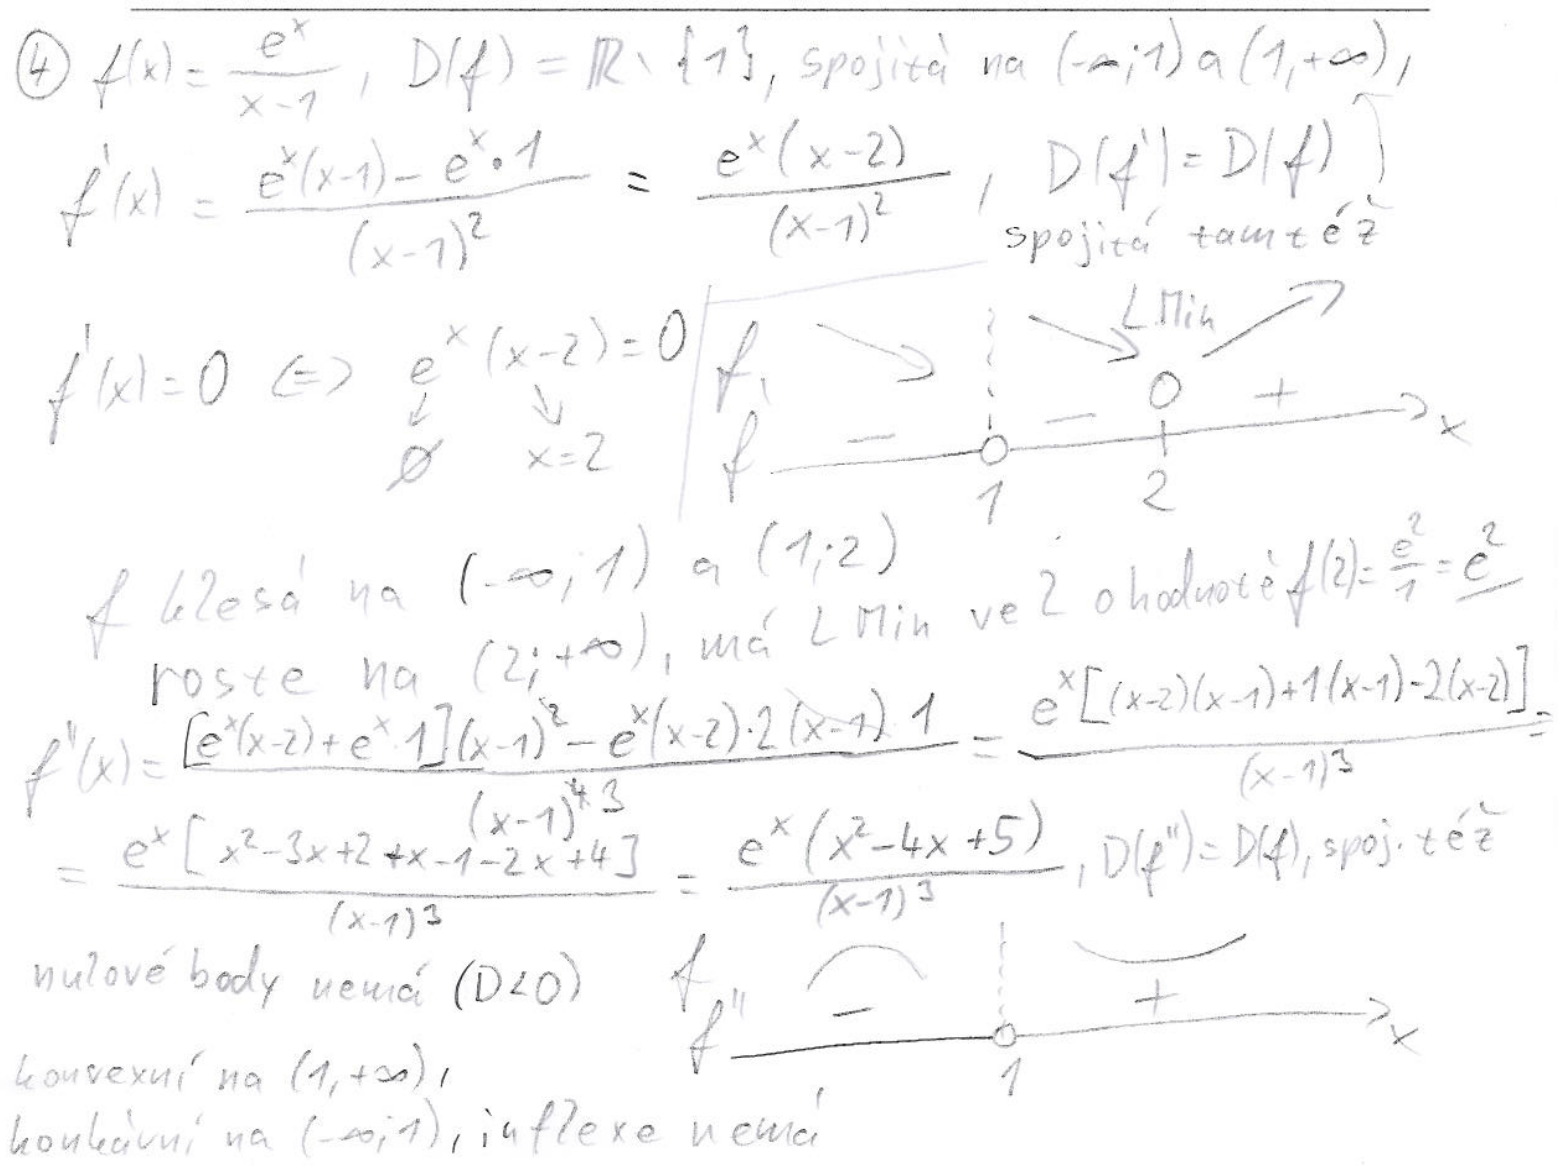 ④ f(x) = e^x/(x-1), D(f) = ℝ \ {1}, spojitá na (-∞;1) a (1,+∞),
f'(x) = (e^x(x-1) - e^x·1)/(x-1)^2 = e^x(x-2)/(x-1)^2, D(f') = D(f)
spojitá tamtéž
f'(x) = 0 ⇔ e^x (x-2) = 0
∅ x=2
f LMin
f' - - 0 + x
1 2
f klesá na (-∞;1) a (1;2)
roste na (2;+∞), má LMin ve 2 o hodnotě f(2) = e^2/1 = e^2
f''(x) = ([e^x(x-2) + e^x·1](x-1)^2 - e^x(x-2)·2(x-1)·1)/(x-1)^4 3 = e^x[(x-2)(x-1)+1(x-1)-2(x-2)]/(x-1)^3 =
= e^x[x^2-3x+2+x-1-2x+4]/(x-1)^3 = e^x(x^2-4x+5)/(x-1)^3, D(f'') = D(f), spoj. též
nulové body nemá (D<0)
f
f'' - + x
1
konvexní na (1,+∞),
konkávní na (-∞;1), inflexe nemá